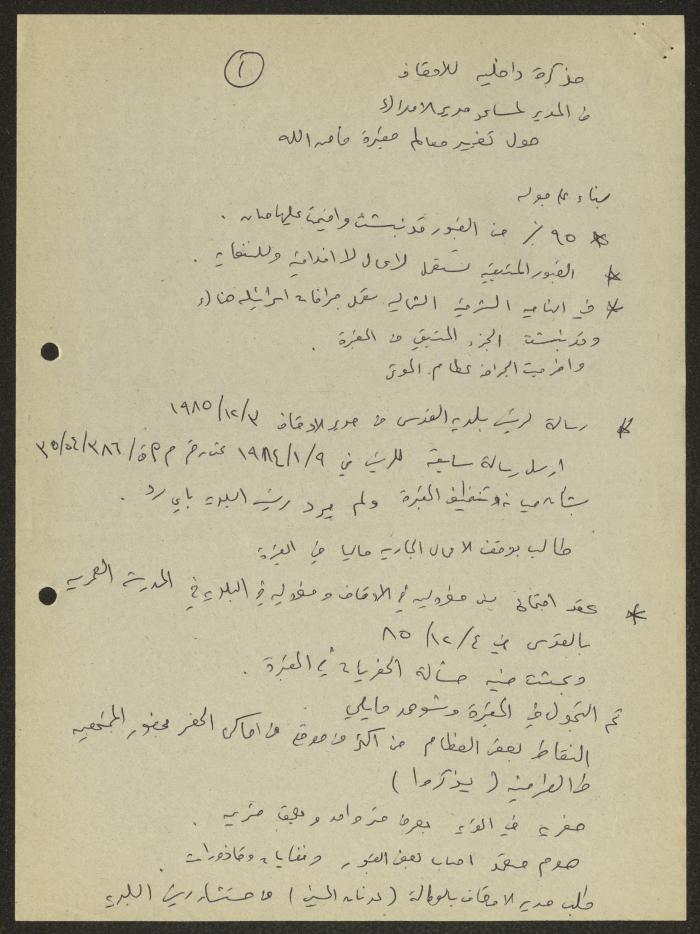 أ
مذكرة داخلية للاوقاف
من المدير لمساعد مدير
حول تغيير معالم مقبرة مأمن الله
بناء على جوله
* ٩٥ ٪ من القبور قد نبشت واقيمت عليها مبان .
* القبور المتبقية تستعمل لاعمال لا اخلاقية وللنفايه .
* في الناحيه الشرقية الشماليه تعمل جرافات اسرائيلية هناك
وقد نبشت الجزء المتبقي من المقبرة .
واخرجت الجرافه عظام الموتى
* رسالة لرئيس بلدية القدس من مدير الاوقاف ١٩٨٥/١٢/٣
ارسل رسالة سابقة للرئيس في ١٩٨٤/١/٩ تحت رقم م ق/٣٥/٥٤/٣٨٦
بشأن صيانة وتنظيف المقبرة ولم يرد رئيس البلديه باي رد .
طالب بوقف الاعمال الجارية حاليا في المقبرة
* عقد اجتماع بين مسؤولين في الاوقاف ومسؤولين في البلدية في المدرسة العمريه
بالقدس في ٨٥/١٢/٤
وبحثت فيه مسألة الحفريات في المقبرة .
تم التجول في المقبرة وشوهد مايلي
التقاط بعض العظام من اكثر من موقع من اماكن الحفر بحضور المجتمعين
( يذكروا )
حفريه في المقبره بعرض متر واحد وعمق مترين .
هدم متعمد اصاب بعض القبور ونفايات وقاذورات .
طلب مدير الاوقاف بالوكالة (عدنان الحسيني) من مستشار رئيس البلديه